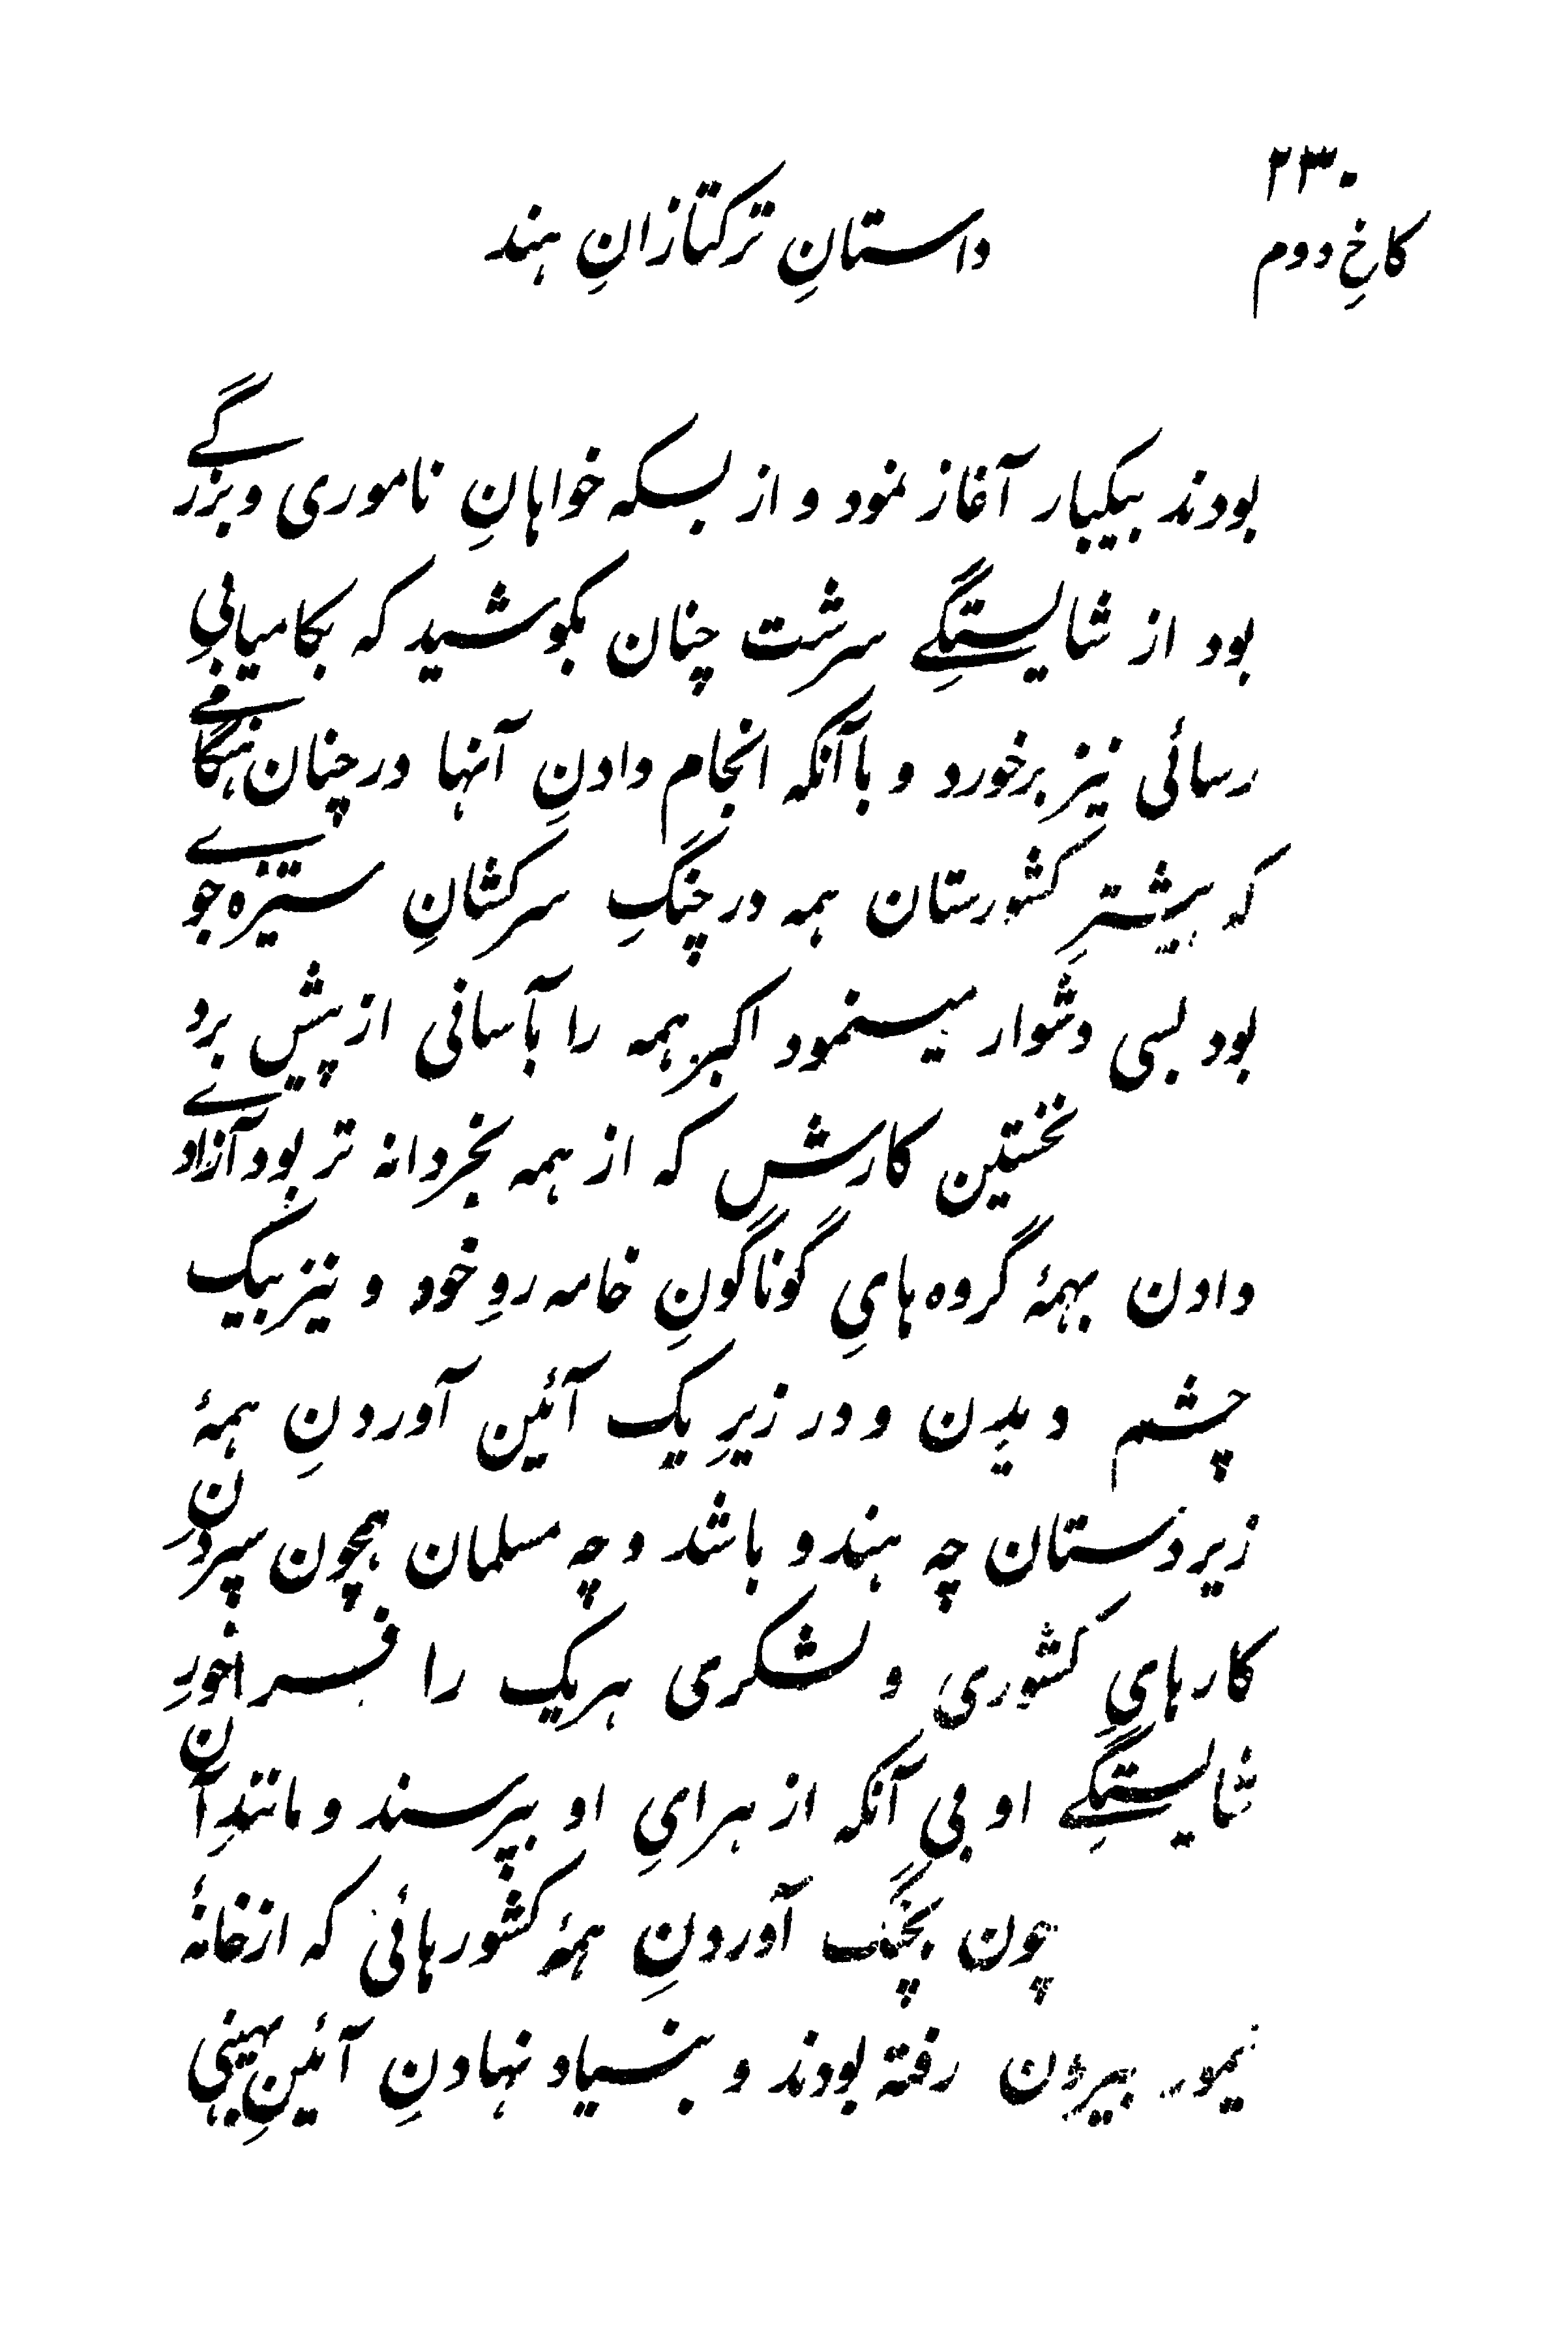 ۲۳۰
کاخِ دوم
داستانِ ترکتازانِ هند
بودند بیکبار آغاز نمود و از بسکه خواهانِ ناموری و بزرگے
بود از شایستگےِ سرشت چنان بکوشید که بکامیابیِ
رسائی نیز برخورد و باآنکه انجام دادنِ آنها در چنان هنگامے
که بیشترِ کشورستان همه در چنگِ سرکشانِ ستیزه جوے
بود بسی دشوار مینمود اکبر همه را بآسانی از پیش برد
نخستین کارش که از همه بخردانه تر بود آزادے
دادن بهمهٔ گروه هایِ گوناگونِ خامه روِ خود و نیز بیک
چشم دیدن و در زیرِ یک آئین آوردنِ همهٔ
زیردستان چه هندو باشد و چه مسلمان همچون سپردنِ
کارهایِ کشوری و لشکری هریک را فراخورِ
شایستگےِ او بی آنکه از هرایِ او بپرسند و مانندِ آن
چون بچنگ آوردنِ همهٔ کشورهائی که از خانهٔ
تیمور بیرون رفته بودند و بنیاد نهادنِ آئینِ بهینی